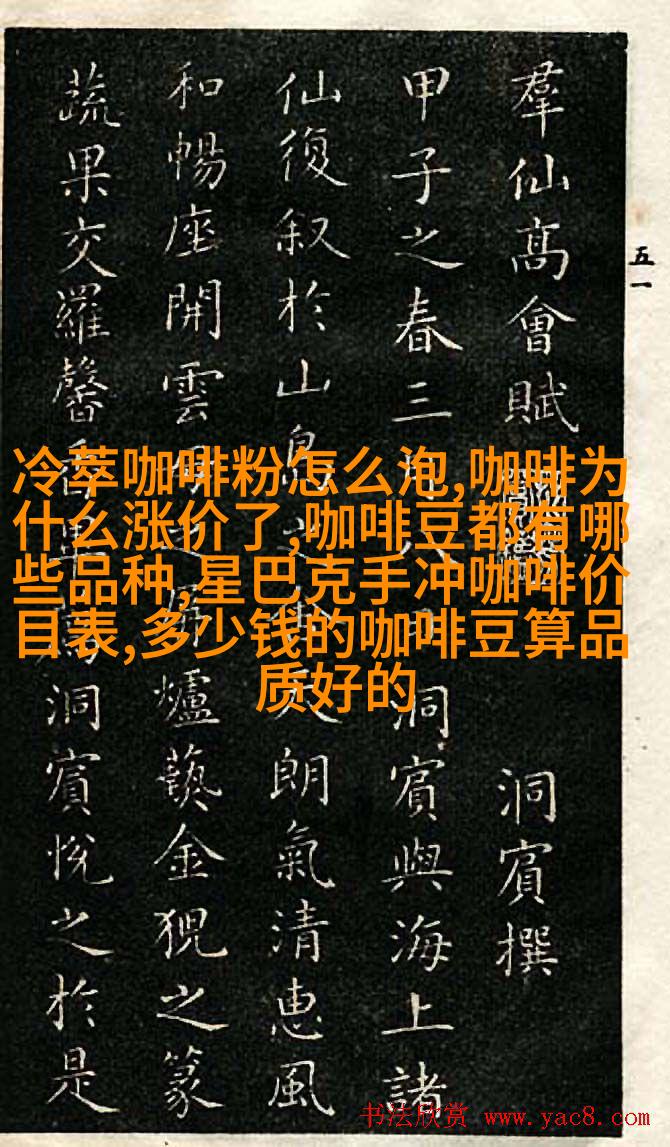 羣仙高會賦 洞賓撰
甲子之春三月 洞賓與海上諸
仙復叙於山島之 天朗氣清惠風
和暢座開雲母之屏爐藝金猊之篆
蔬果交羅馨香 洞賓悅之於是
五一
冷萃咖啡粉怎么泡,咖啡为
什么涨价了,咖啡豆都有哪
些品种,星巴克手冲咖啡价
目表,多少钱的咖啡豆算品
质好的
书法欣赏 www.yac8.com